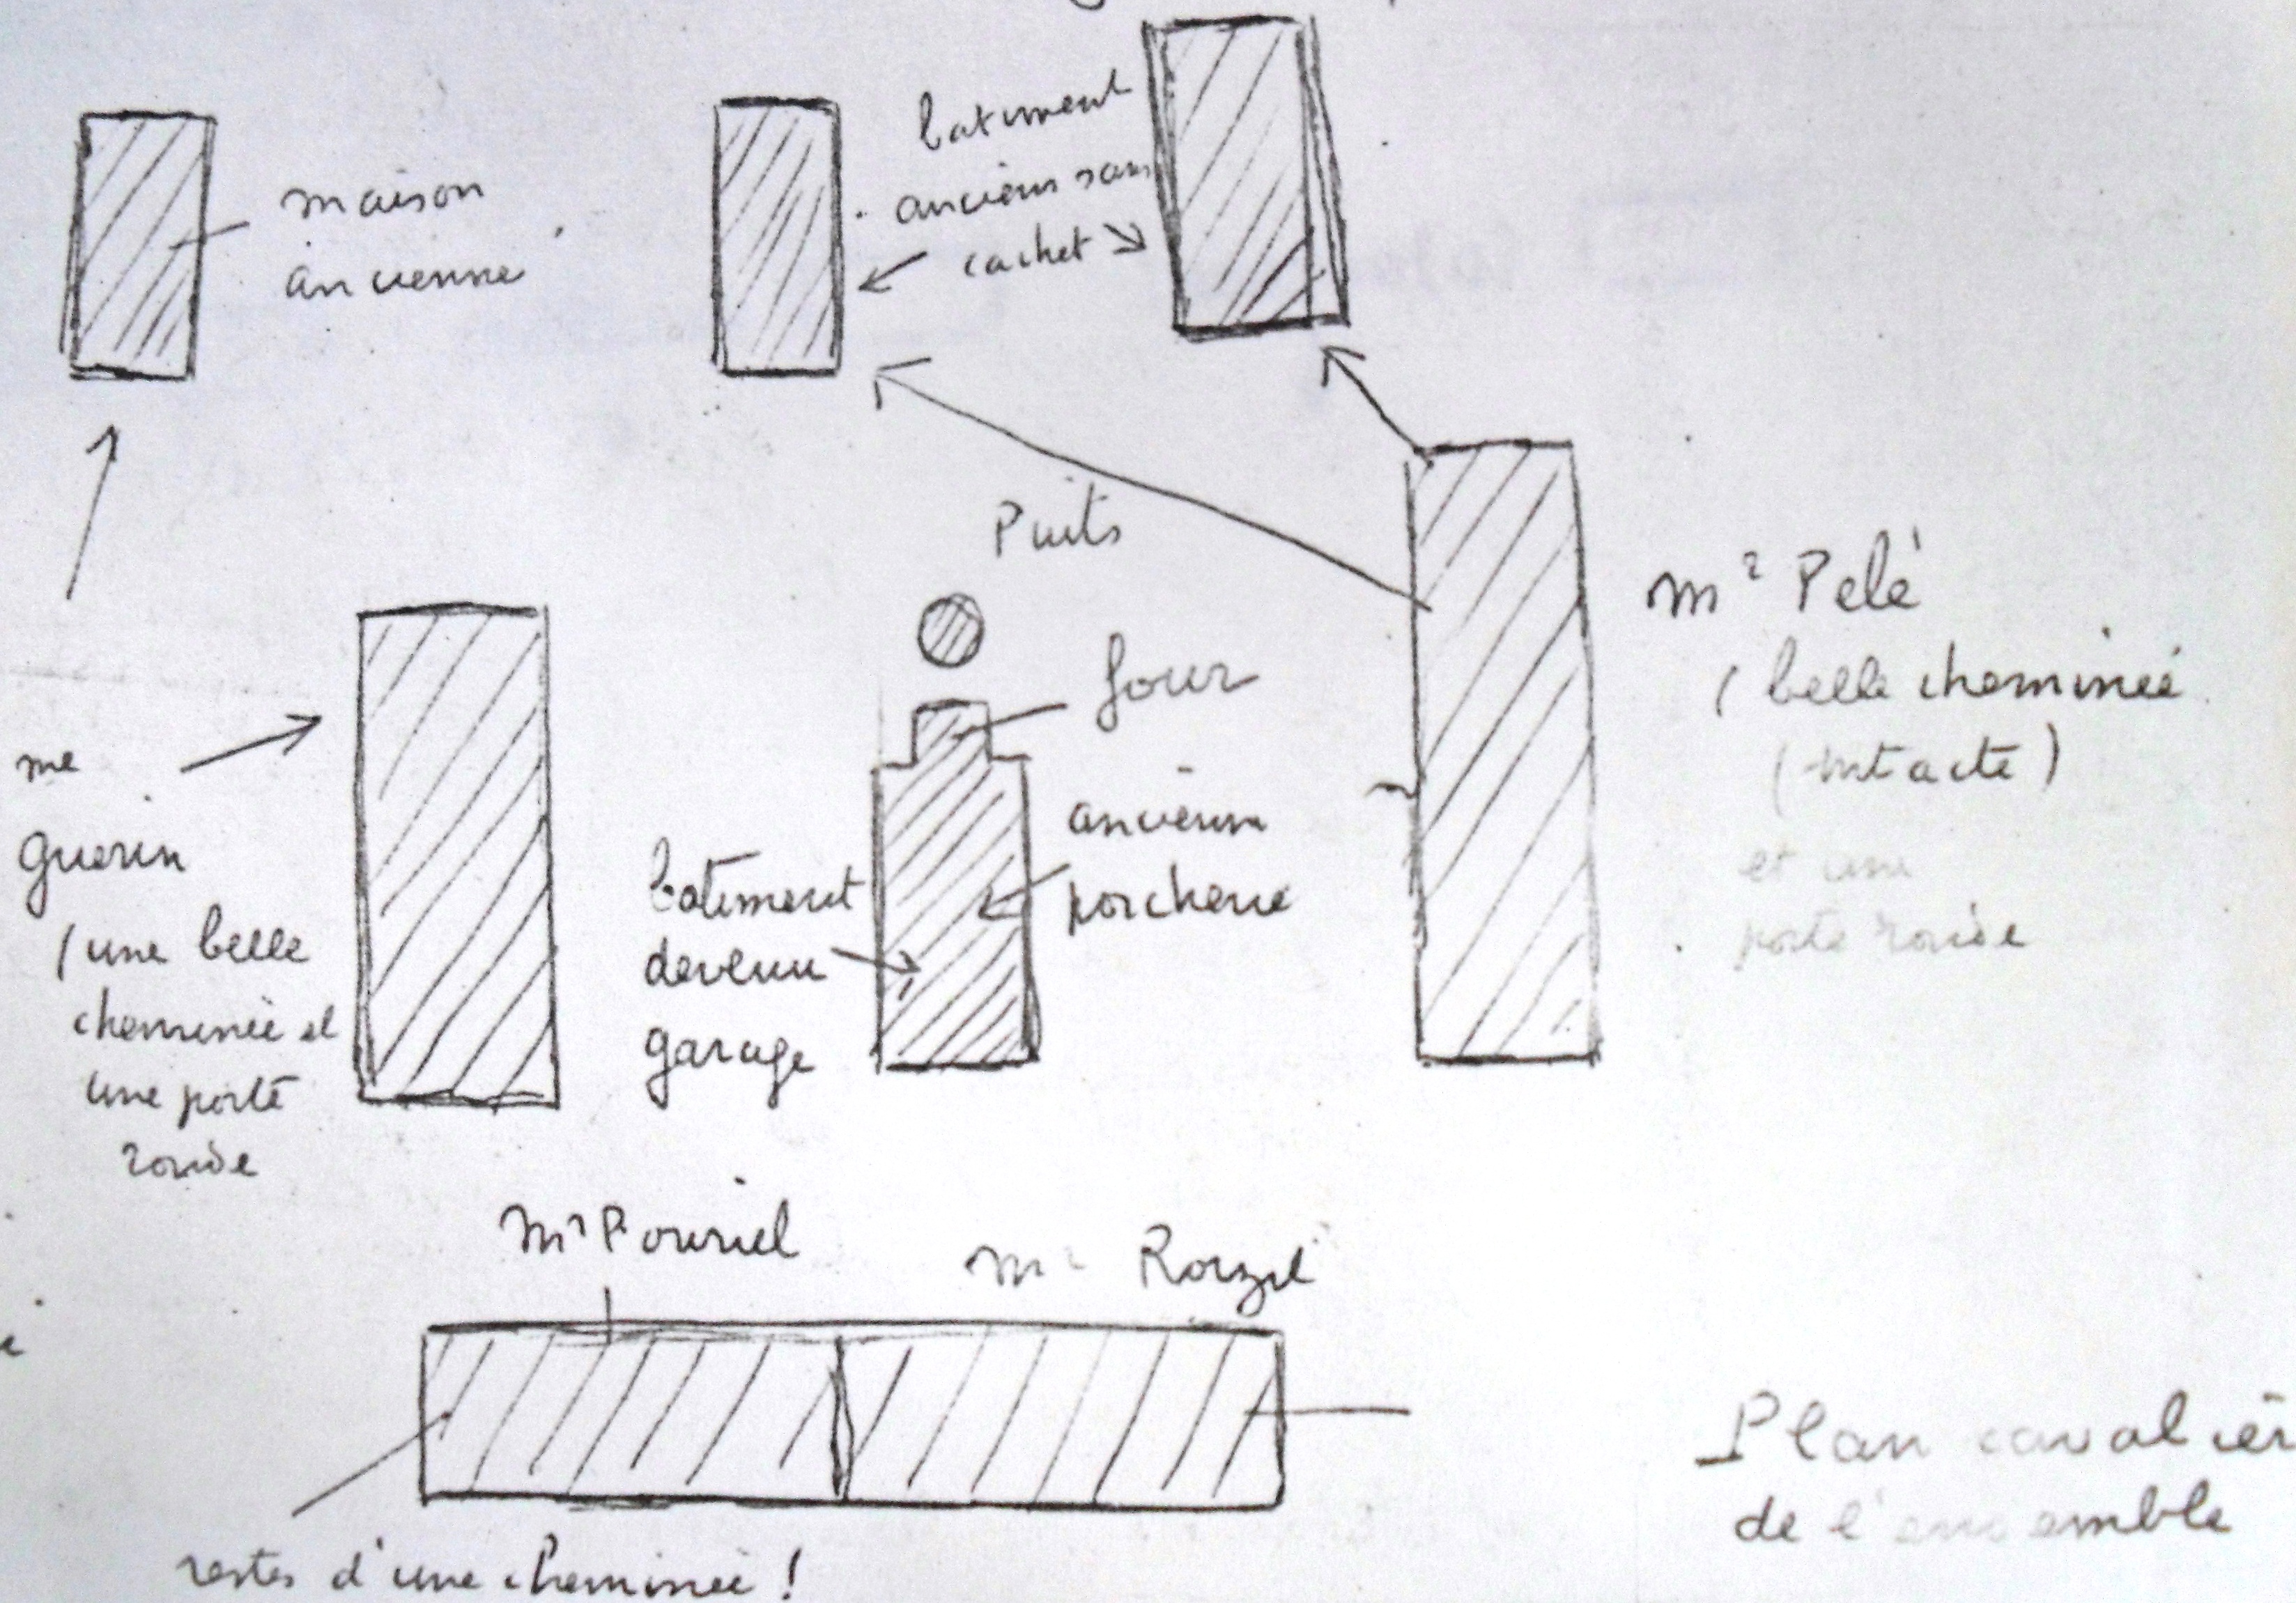 batiment
anciens sans
cachet
maison
ancienne
Puits
mr Pelé
(belle cheminée
(intacte)
et une
porte ronde
four
me
guerin
(une belle
cheminée et
une porte
ronde
batiment
devenu
garage
ancienne
porcherie
mr Pouriel
mr Rouzel
restes d'une cheminée !
Plan cavalier
de l'ensemble